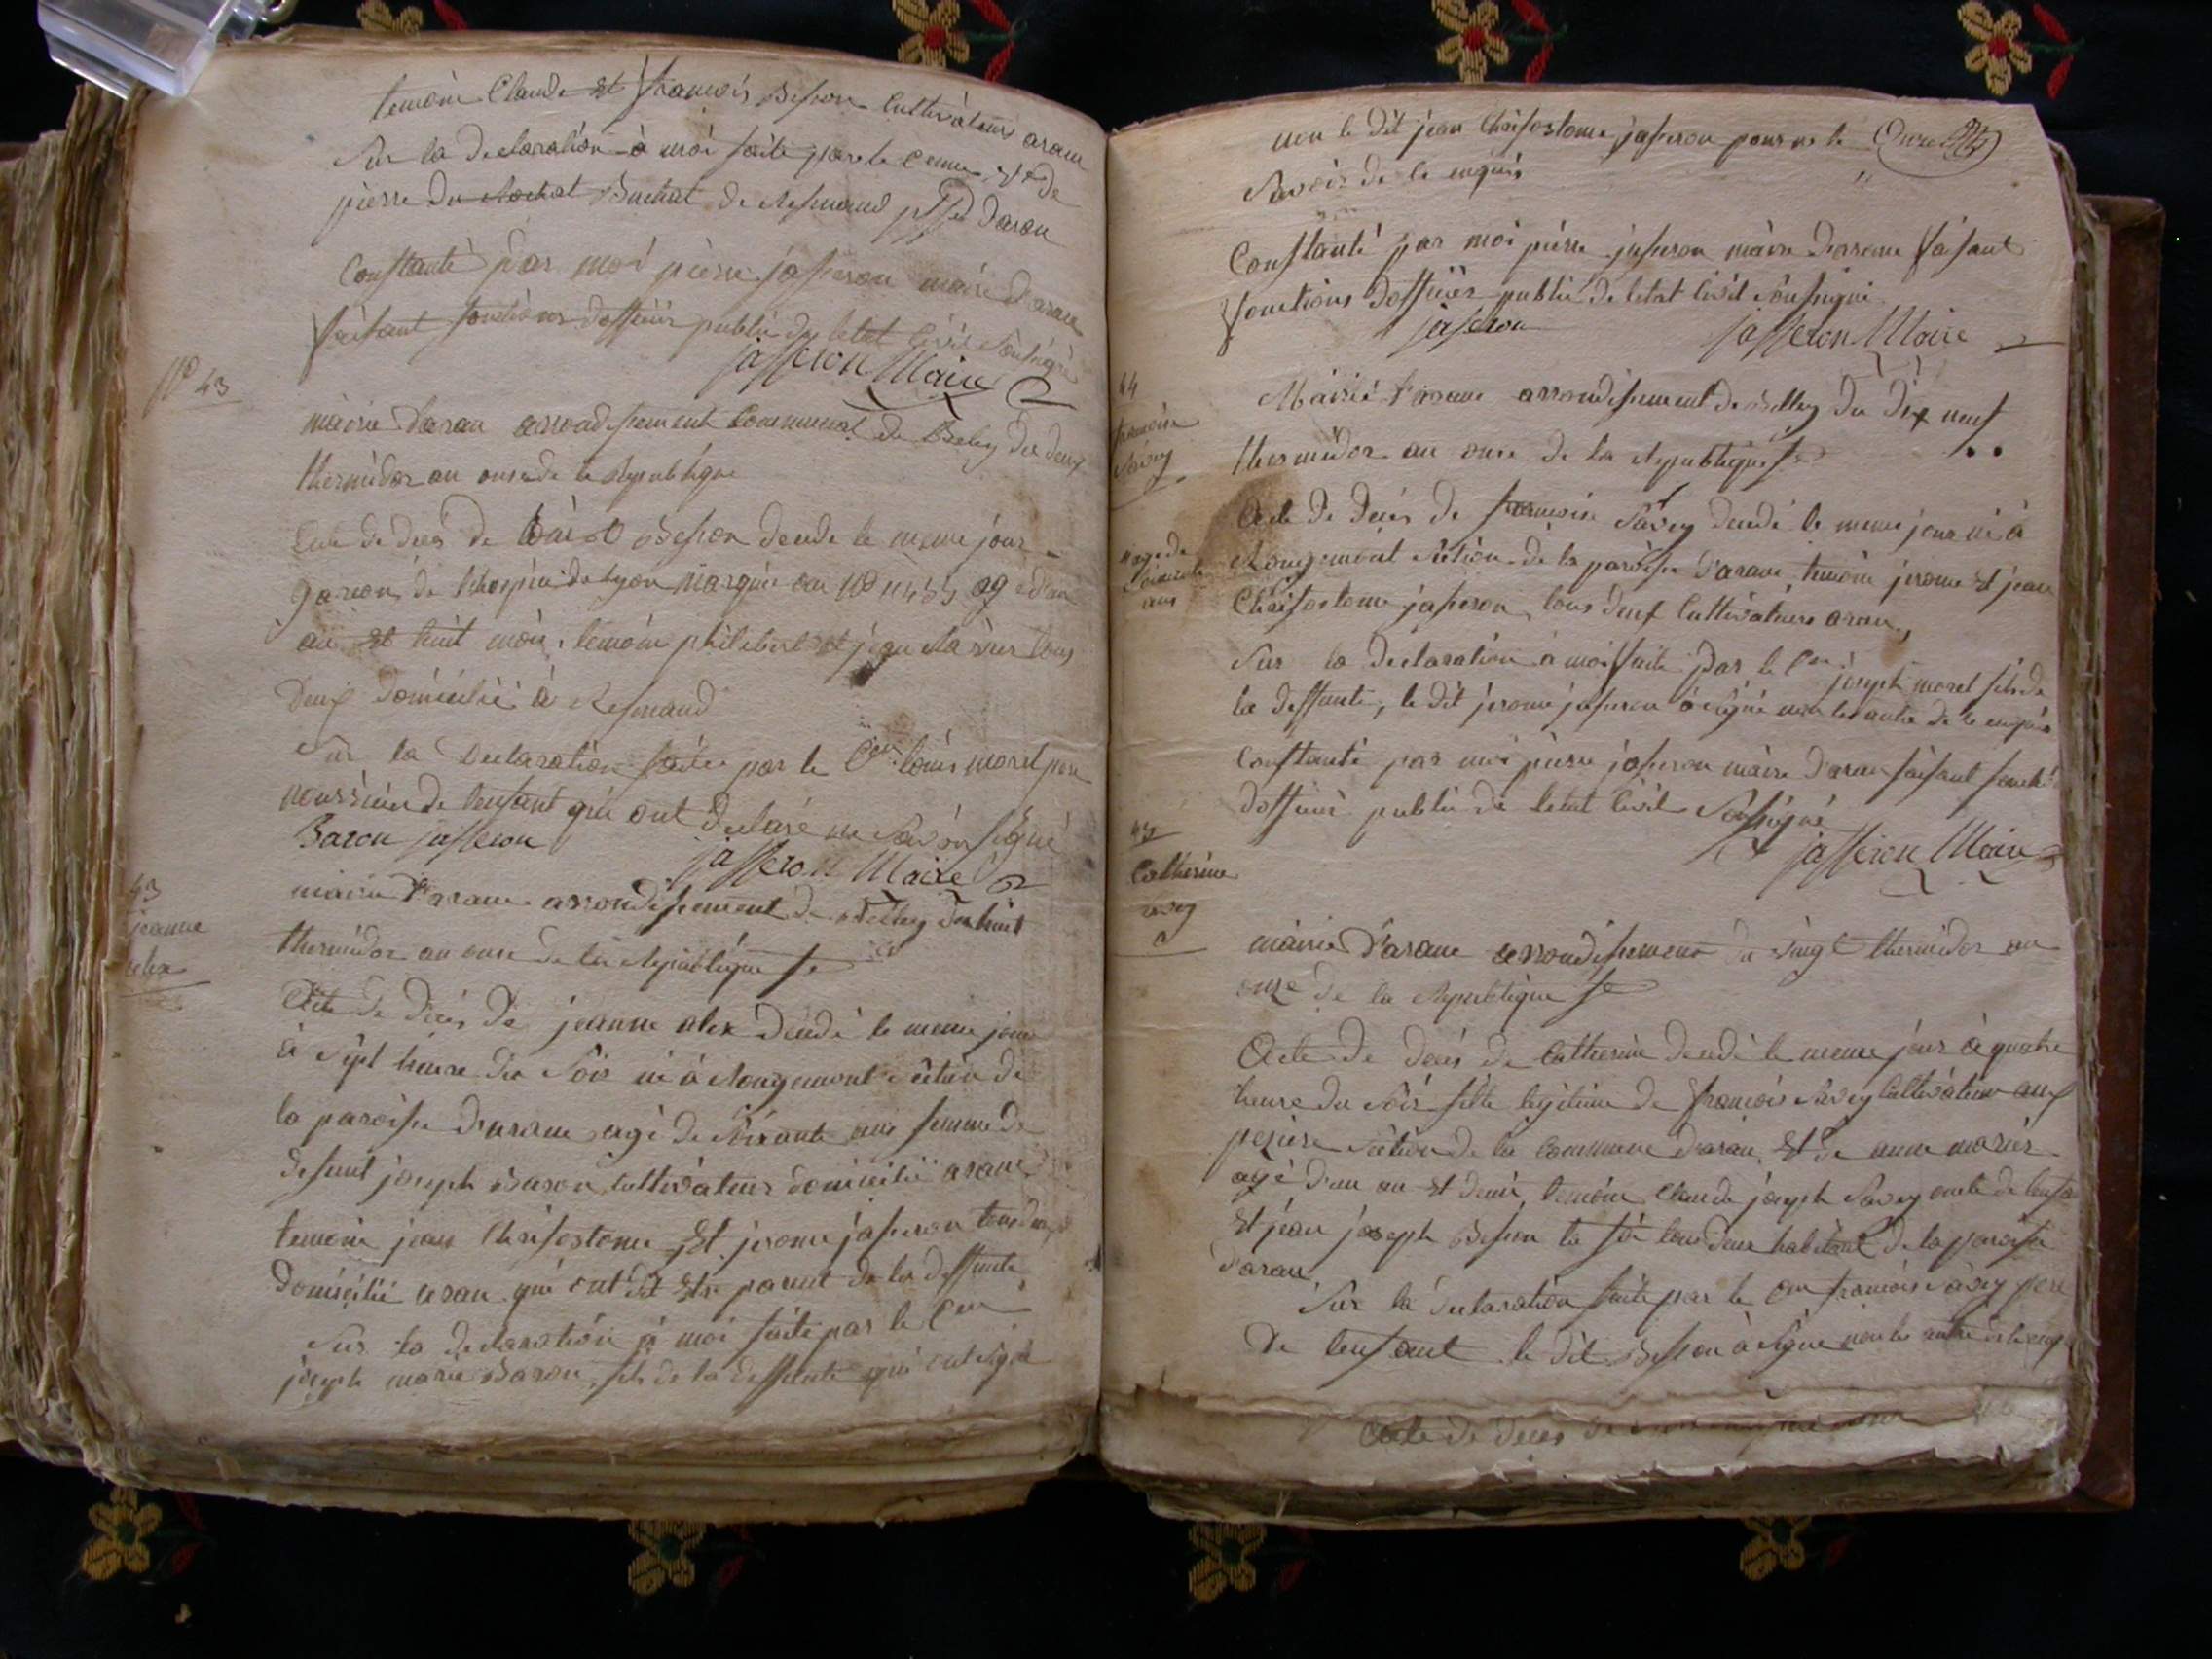 temoin Claude Et françois Besson Cultivateurs arane
Sur la declaration à moi faite par le
pierre Buchat de Resinand d'aran
Constanté par moi pierre jasseron maire d'arane
faisant fonctions dofficier public de letat Civil Soussigné
jasseron Maire
No 43
mairie d'aran arrondissement Communal de Beley du deux
thermidor an onze de la Republique
acte de deces de Besson decede le meme jour
garcon de lhospice de Lyon marquée au No agé d'un
an et huit mois, temoin philibert et jean tous
deux domicilié à Resinand
Sur la declaration faite par le Cen louis morel pere
nourricier de lenfant qui ont declaré ne Savoir signé
Baron jasseron
jasseron Maire
43
jeanne
alex
mairie d'arane arrondissement de Belley du huit
thermidor an onze de la Republique
Acte de décés de jeanne alex decedé le meme jour
à sept heure du Soir né à Rougemont Section de
la paroisse d'arane agé de Soixante ans femme de
defunt joseph Baron cultivateur domicilié arane
temoin jean Chrisostome Et jerome jasseron tous deux
domicilié aran qui ont dit Etre parent de la deffunte
Sur la declaration à moi faite par le Cen
joseph marie Baron, fils de la deffunte qui ont signé
non le dit jean Chrisostome jasseron pour ne le
Savoir de le enquis
Constanté par moi pierre jasseron maire d'arane faisant
fonctions dofficier public de letat Civil Soussigné
jasseron
jasseron Maire
44
françoise
Savey
Mairie d'arane arrondissement de Belley du dix neuf
thermidor an onze de la Republique
Acte de deces de françoise Savey decedé le meme jour né à
agé de
ans
Rougemont Section de la paroisse d'arane, temoin jerome Et jean
Chrisostome jasseron tous deux Cultivateurs aran,
Sur la declaration à moi faite par le Cen joseph morel fils de
la deffunte, le dit jerome jasseron à signé non les autre de le enquis
Constanté par moi pierre jasseron maire d'aran faisant fonct
dofficier public de letat Civil Sousigné
jasseron Maire
45
Catherine
Savey
mairie d'arane arrondissement du vingt thermidor an
onze de la Republique
Acte de deces de Catherine decedé le meme jour à quatre
heure du Soir fille legitime de françois Savey Cultivateur aux
Section de la Commune d'aran Et de anne
agé d'un an Et demi, temoin Claude joseph Savey oncle de
Et jean joseph Besson tous deux habitant de la paroisse
d'aran,
Sur la declaration faite par le Cen francois Savey pere
de lenfant le dit Besson à signé non les autre de le enq
Acte de deces de